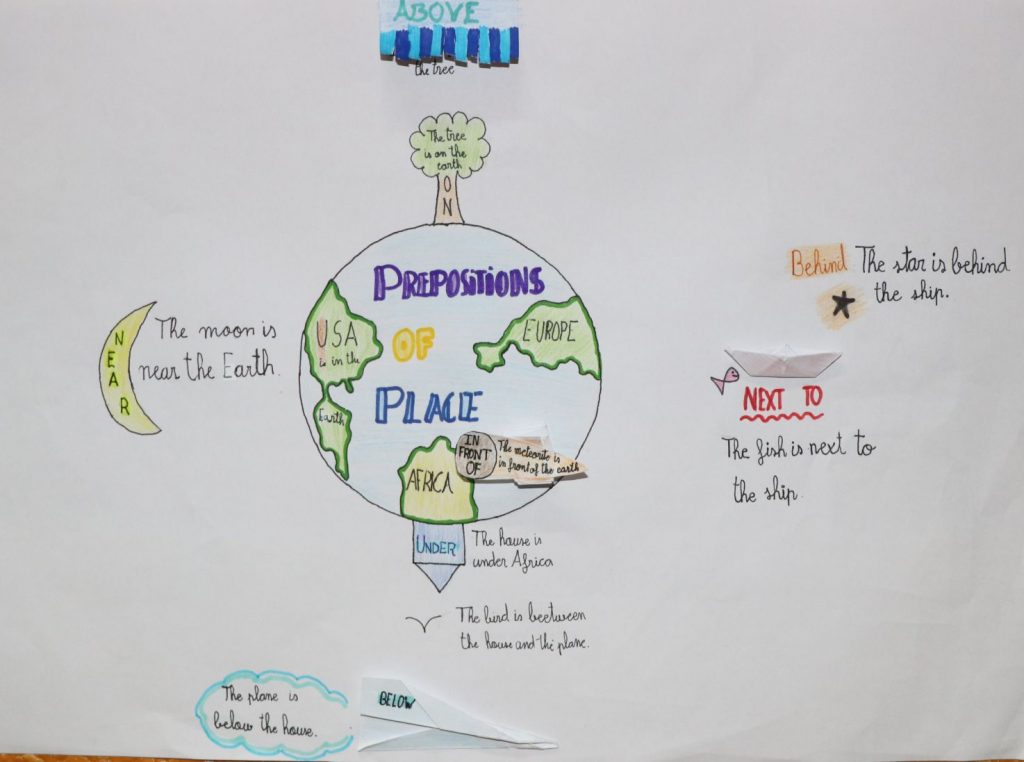 ABOVE
the tree
The tree
is on the
earth
ON
PREPOSITIONS
OF
PLACE
USA
is in the
Earth
EUROPE
AFRICA
IN
FRONT
OF
The meteorite is
in front of the earth
NEAR
The moon is
near the Earth.
Behind The star is behind
the ship.
NEXT TO
The fish is next to
the ship.
UNDER
The house is
under Africa
The bird is beetween
the house and the plane.
The plane is
below the house.
BELOW